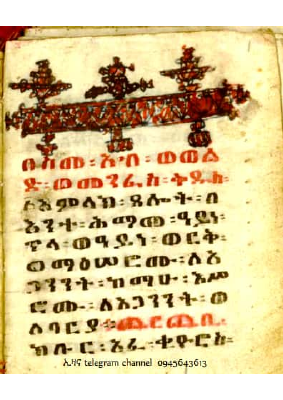 በስመ፡ አብ፡ ወወል
ድ፡ ወመንፈስ፡ ቅዱስ፡
፩አምላክ፡ ጸሎት፡ በ
እንተ፡ ሕማመ፡ ዓይነ፡
ጥላ፡ ወዓይነ፡ ወርቅ፡
ወማዕሠሮሙ፡ ለአ
ጋንንት፡ ከማሁ፡ እሥ
ሮሙ፡ ለአጋንንት፡ ወ
ለባርያ፡
telegram channel 0945643613